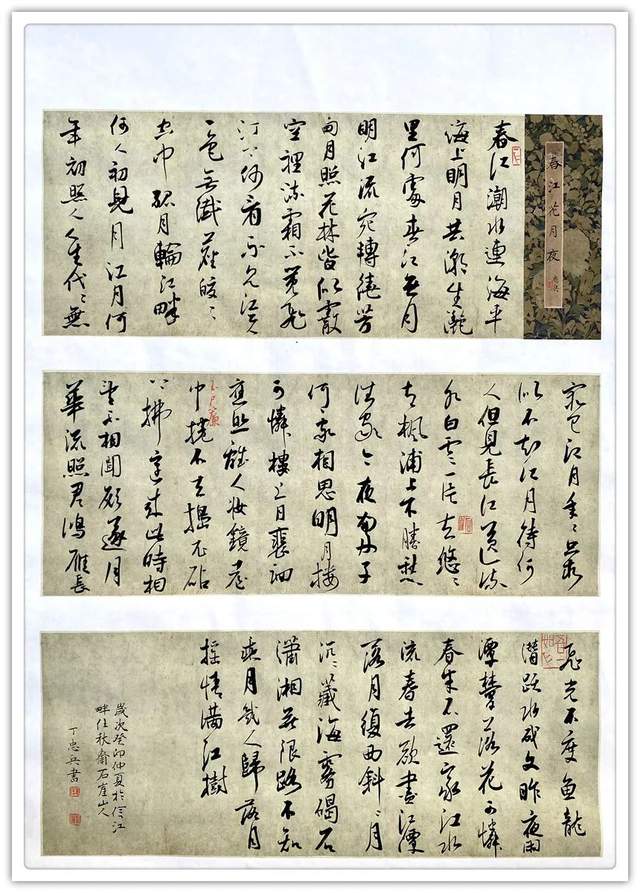 春江花月夜
春江潮水連海平
海上明月共潮生灔
里何處春江無月
明江流宛轉繞芳
甸月照花林皆似霰
空裡流霜不覺飛
汀上沙看不見江天
一色無纖塵皎〻
空中孤月輪江畔
何人初見月江月何
年初照人人生代〻無
窮已江月年〻只相
似不知江月待何
人但見長江送流
水白雲一片去悠〻
青楓浦上不勝愁
誰家今夜扁舟子
何處相思明月樓
可憐樓上月裴洄
應照離人妝鏡臺
玉戶簾
中捲不去搗衣砧
上拂還來此時相
望不相聞願逐月
華流照君鴻雁長
飛光不度魚龍
潛躍水成文昨夜閑
潭夢落花可憐
春半不還家江水
流春去欲盡江潭
落月復西斜〻月
沉〻藏海霧碣石
瀟湘無限路不知
乘月幾人歸落月
搖情滿江樹
歲次癸卯仲夏於信江
畔仕秋齋石崖山人
丁忠兵書